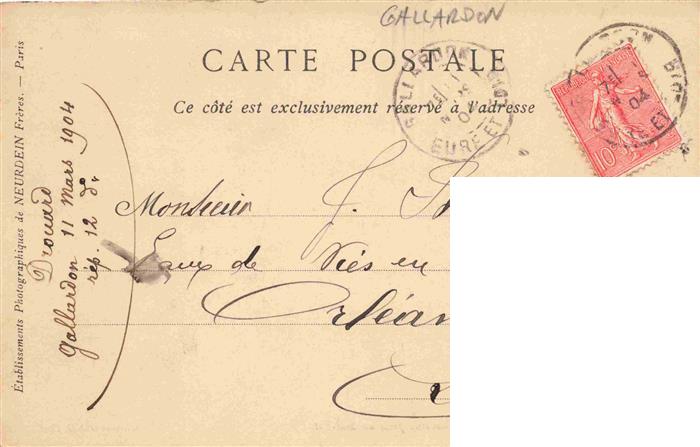 GALLARDON
CARTE POSTALE
Ce côté est exclusivement réservé à l'adresse
GALLARDON
EURE-ET
10
04
Monsieur J.
Eaux de Vies en
Orléan
Drouard
Gallardon 11 mars 1904
rép. 12 do
Établissements Photographiques de NEURDEIN Frères. — Paris